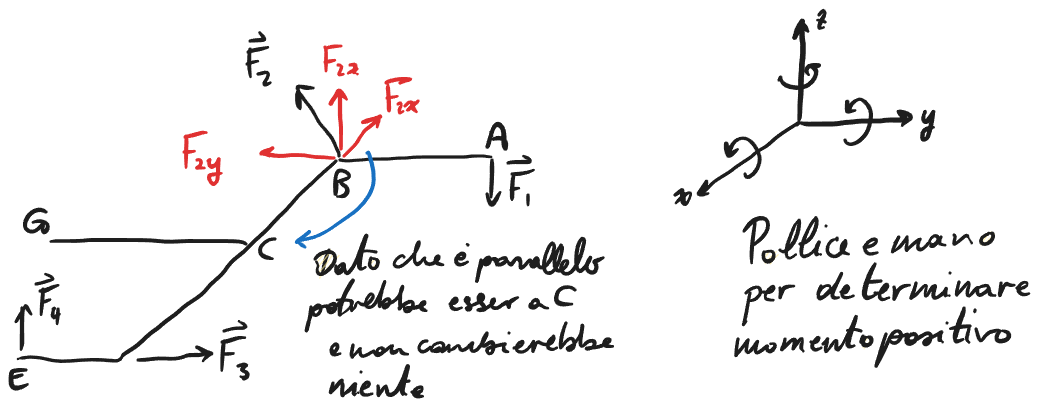 F₂
F₂z
F₂x
F₂y
A
B
F₁
G
C
F₄
E
F₃
Dato che è parallelo
potrebbe esser a C
e non cambierebbe
niente
z
y
x
Pollice e mano
per determinare
momento positivo